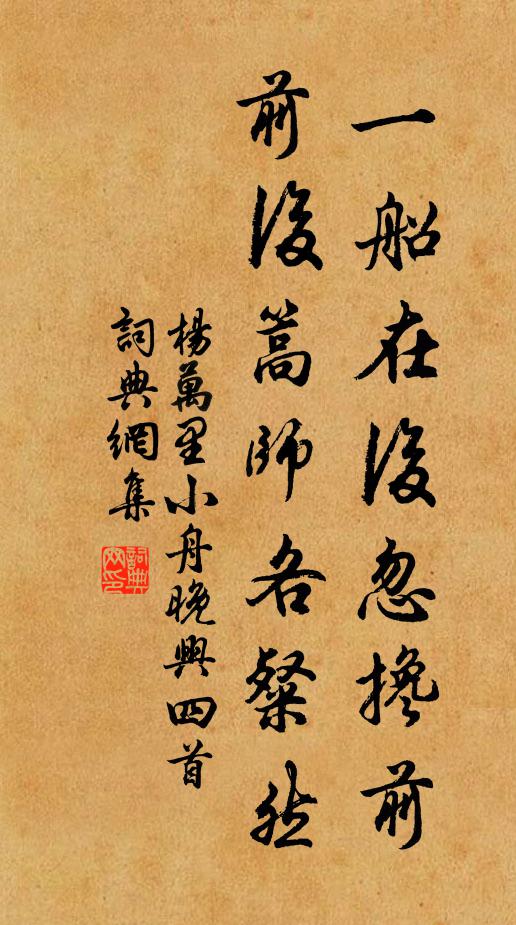 一船在後忽攙前
前後篙師各粲然
楊萬里小舟晚興四首
詞典網集
詞典網印